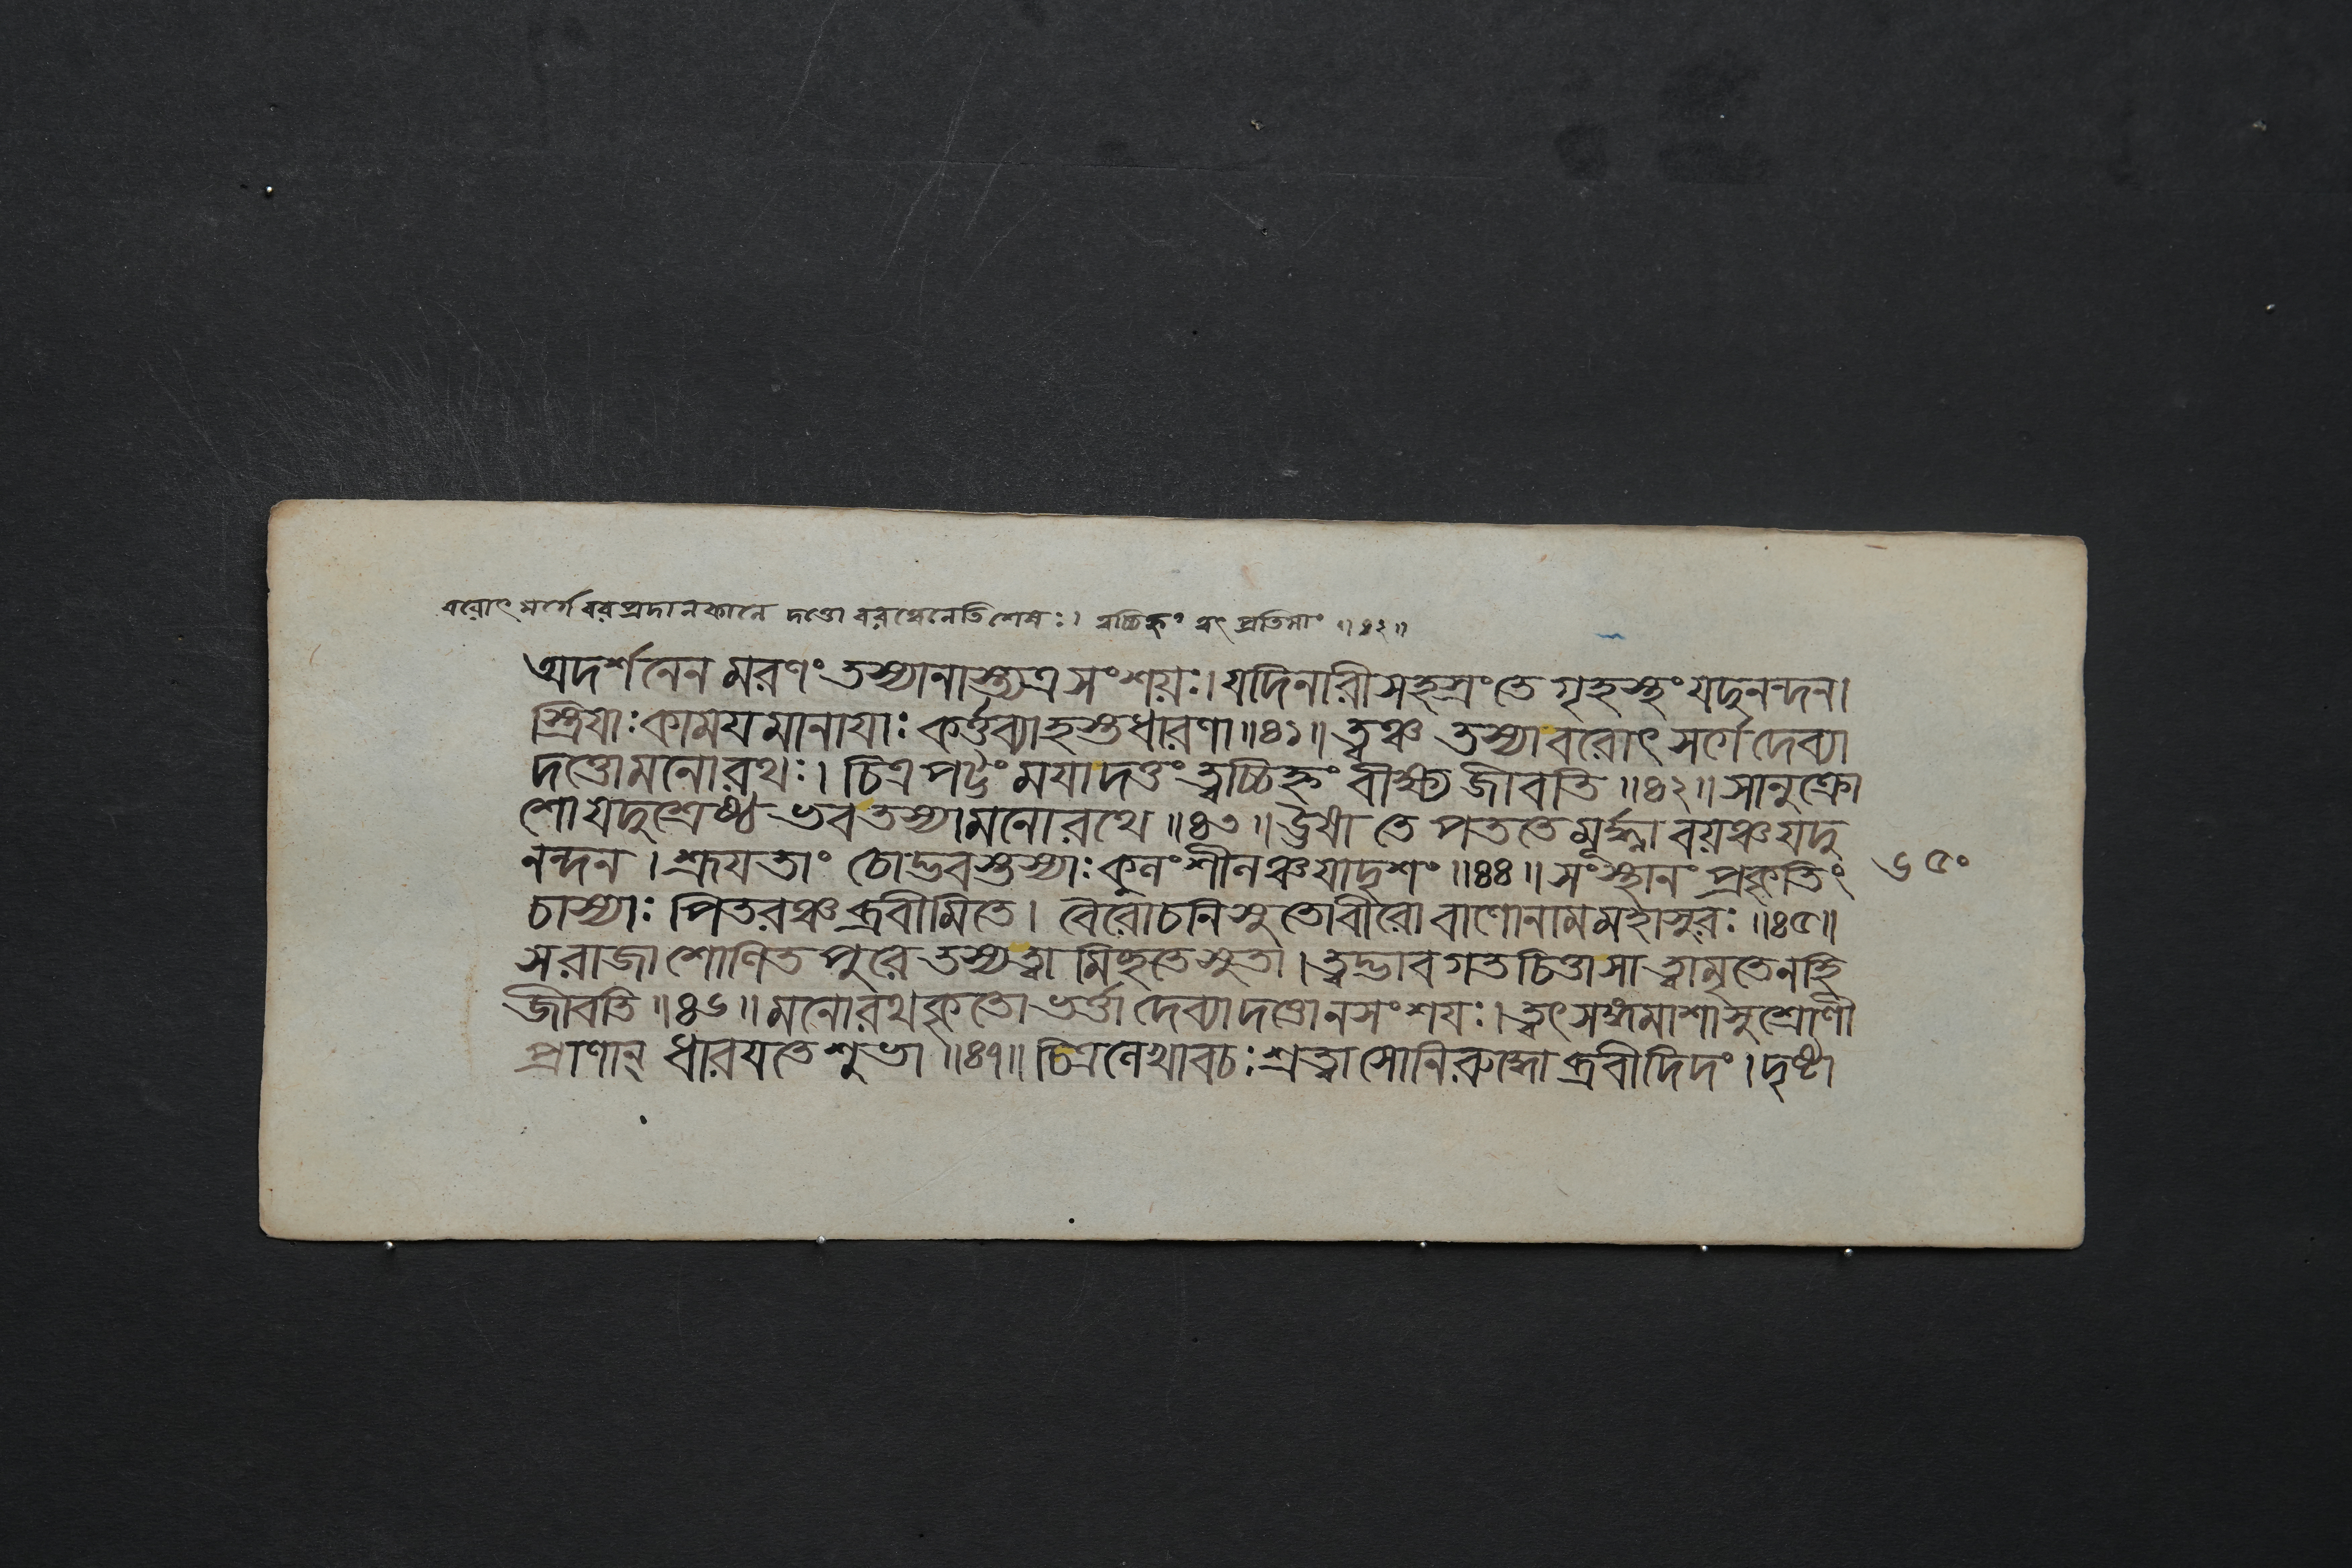 বরোৎসর্গে বরপ্রদানকালে দত্তো বরত্বেনেতিশেষঃ। ত্বচ্চিহ্নং ত্বৎ প্রতিমাং ॥৪২॥
অদর্শনেন মরণং তস্যানাস্ত্যত্র সংশয়ঃ। যদিনারীসহস্রং তে গৃহস্থং যদুনন্দন।
স্ত্রিযাঃ কামযমানাযাঃ কর্ত্তব্যাহস্তধারণা॥৪১॥ ত্বঞ্চ তস্যাবরোৎ সর্গে দেব্যা
দত্তোমনোরথঃ। চিত্রপট্টং মযাদত্তং ত্বচ্চিহ্নং বীক্ষ্য জীবতি ॥৪২॥ সানুক্রো
শো যদুশ্রেষ্ঠ ভবতস্যামনোরথে ॥৪৩॥ উষা তে পততে মূর্দ্ধ্না বয়ঞ্চ যদু
নন্দন। শ্রূযতাং চোদ্ভবস্তস্যাঃ কুলং শীলঞ্চ যাদৃশং ॥৪৪॥ সংস্থানং প্রকৃতিং ৬৫০
চাস্যাঃ পিতরঞ্চ ব্রবীমিতে। বৈরোচনিসুতোবীরো বাণোনামমহাসুরঃ ॥৪৫॥
স রাজা শোণিতপুরে তস্য ত্বা মিচ্ছতে সুতা। ত্বদ্ভাবগতচিত্তাসা ত্বামৃতেনহি
জীবতি ॥৪৬॥ মনোরথকৃতো ভর্ত্তা দেব্যাদত্তোনসংশযঃ। ত্বৎসঙ্গমাশা সুশ্রোণী
প্রাণান্ ধারযতে শুভা ॥৪৭॥ চিত্রলেখাবচঃ শ্রুত্বা সোনিরুদ্ধোব্রবীদিদং। দৃষ্টা